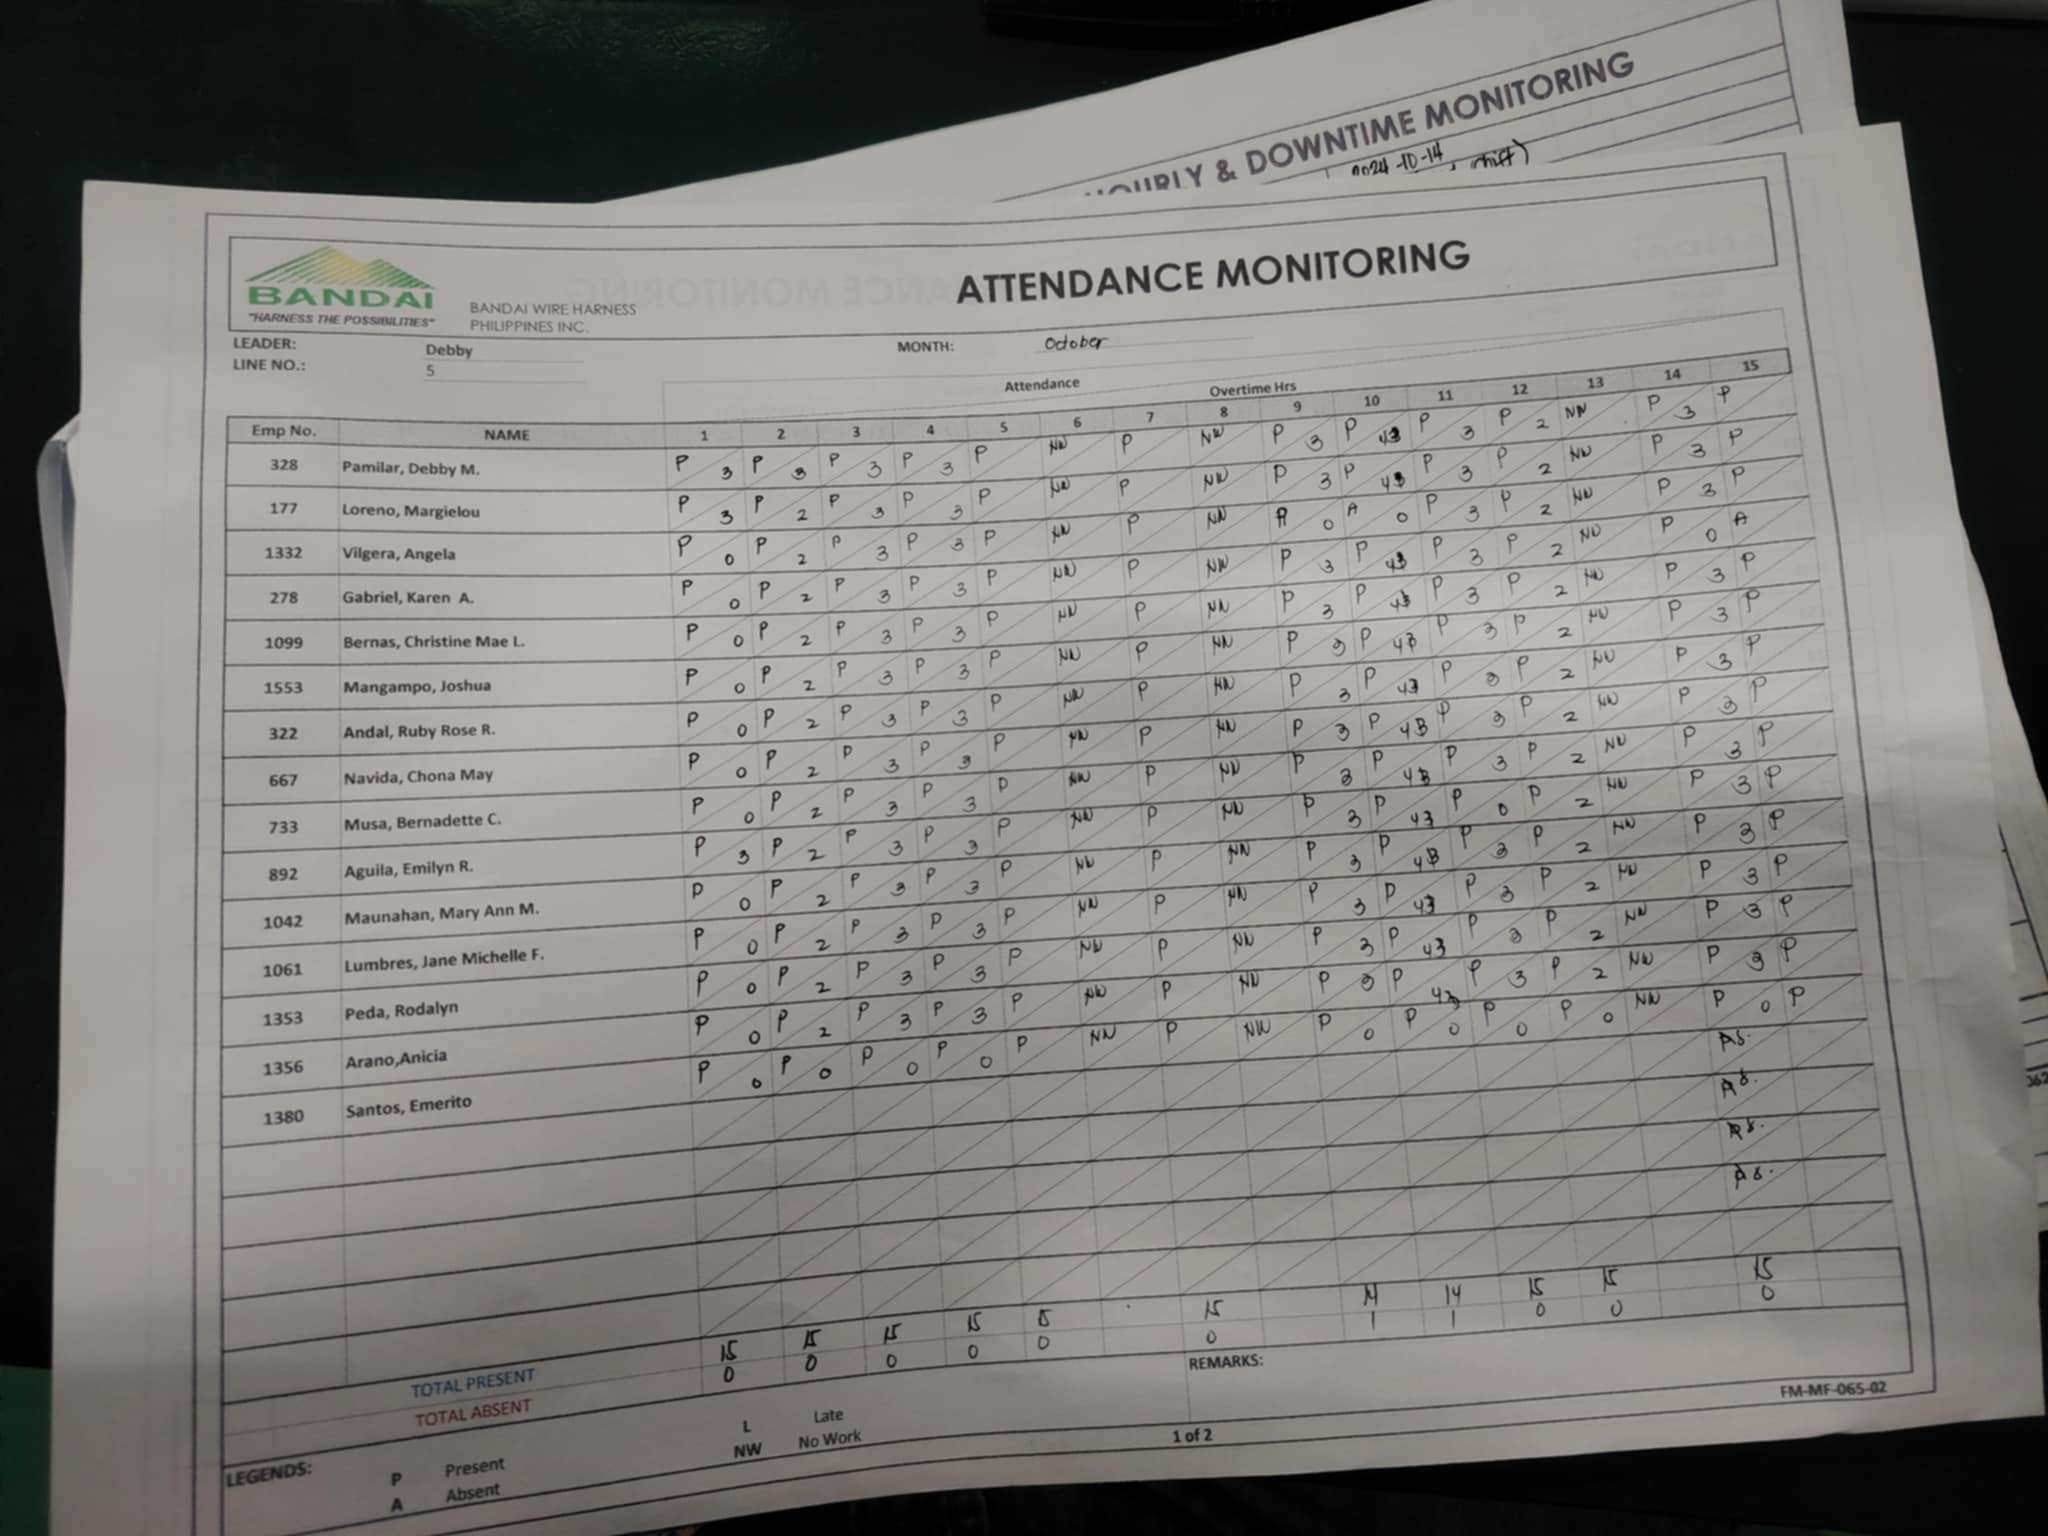 HOURLY & DOWNTIME MONITORING
2024-10-14, shift)
BANDAI
"HARNESS THE POSSIBILITIES"
BANDAI WIRE HARNESS
PHILIPPINES INC.
ATTENDANCE MONITORING
LEADER: Debby MONTH: October
LINE NO.: 5
Attendance Overtime Hrs
Emp No. NAME 1 2 3 4 5 6 7 8 9 10 11 12 13 14 15
328 Pamilar, Debby M. P 3 P 3 P 3 P 3 P NW P NW P 3 P 43 P 3 P 2 NW P 3 P
177 Loreno, Margielou P 3 P 2 P 3 P 3 P NW P NW P 3 P 43 P 3 P 2 NW P 3 P
1332 Vilgera, Angela P 0 P 2 P 3 P 3 P NW P NW A 0 A 0 P 3 P 2 NW P 3 P
278 Gabriel, Karen A. P 0 P 2 P 3 P 3 P NW P NW P 3 P 43 P 3 P 2 NW P 0 A
1099 Bernas, Christine Mae L. P 0 P 2 P 3 P 3 P NW P NW P 3 P 43 P 3 P 2 NW P 3 P
1553 Mangampo, Joshua P 0 P 2 P 3 P 3 P NW P NW P 3 P 43 P 3 P 2 NW P 3 P
322 Andal, Ruby Rose R. P 0 P 2 P 3 P 3 P NW P NW P 3 P 43 P 3 P 2 NW P 3 P
667 Navida, Chona May P 0 P 2 P 3 P 3 P NW P NW P 3 P 43 P 3 P 2 NW P 3 P
733 Musa, Bernadette C. P 0 P 2 P 3 P 3 P NW P NW P 3 P 43 P 3 P 2 NW P 3 P
892 Aguila, Emilyn R. P 3 P 2 P 3 P 3 P NW P NW P 3 P 43 P 0 P 2 NW P 3 P
1042 Maunahan, Mary Ann M. P 0 P 2 P 3 P 3 P NW P NW P 3 P 43 P 3 P 2 NW P 3 P
1061 Lumbres, Jane Michelle F. P 0 P 2 P 3 P 3 P NW P NW P 3 P 43 P 3 P 2 NW P 3 P
1353 Peda, Rodalyn P 0 P 2 P 3 P 3 P NW P NW P 3 P 43 P 3 P 2 NW P 3 P
1356 Arano,Anicia P 0 P 2 P 3 P 3 P NW P NW P 3 P 43 P 3 P 2 NW P 3 P
1380 Santos, Emerito P 0 P 0 P 0 P 0 P NW P NW P 0 P 0 P 0 P 0 NW P 0 P
TOTAL PRESENT 15 15 15 15 15 15 14 14 15 15 15
TOTAL ABSENT 0 0 0 0 0 0 1 1 0 0 0
REMARKS:
FM-MF-065-02
LEGENDS: P Present L Late
A Absent NW No Work
1 of 2